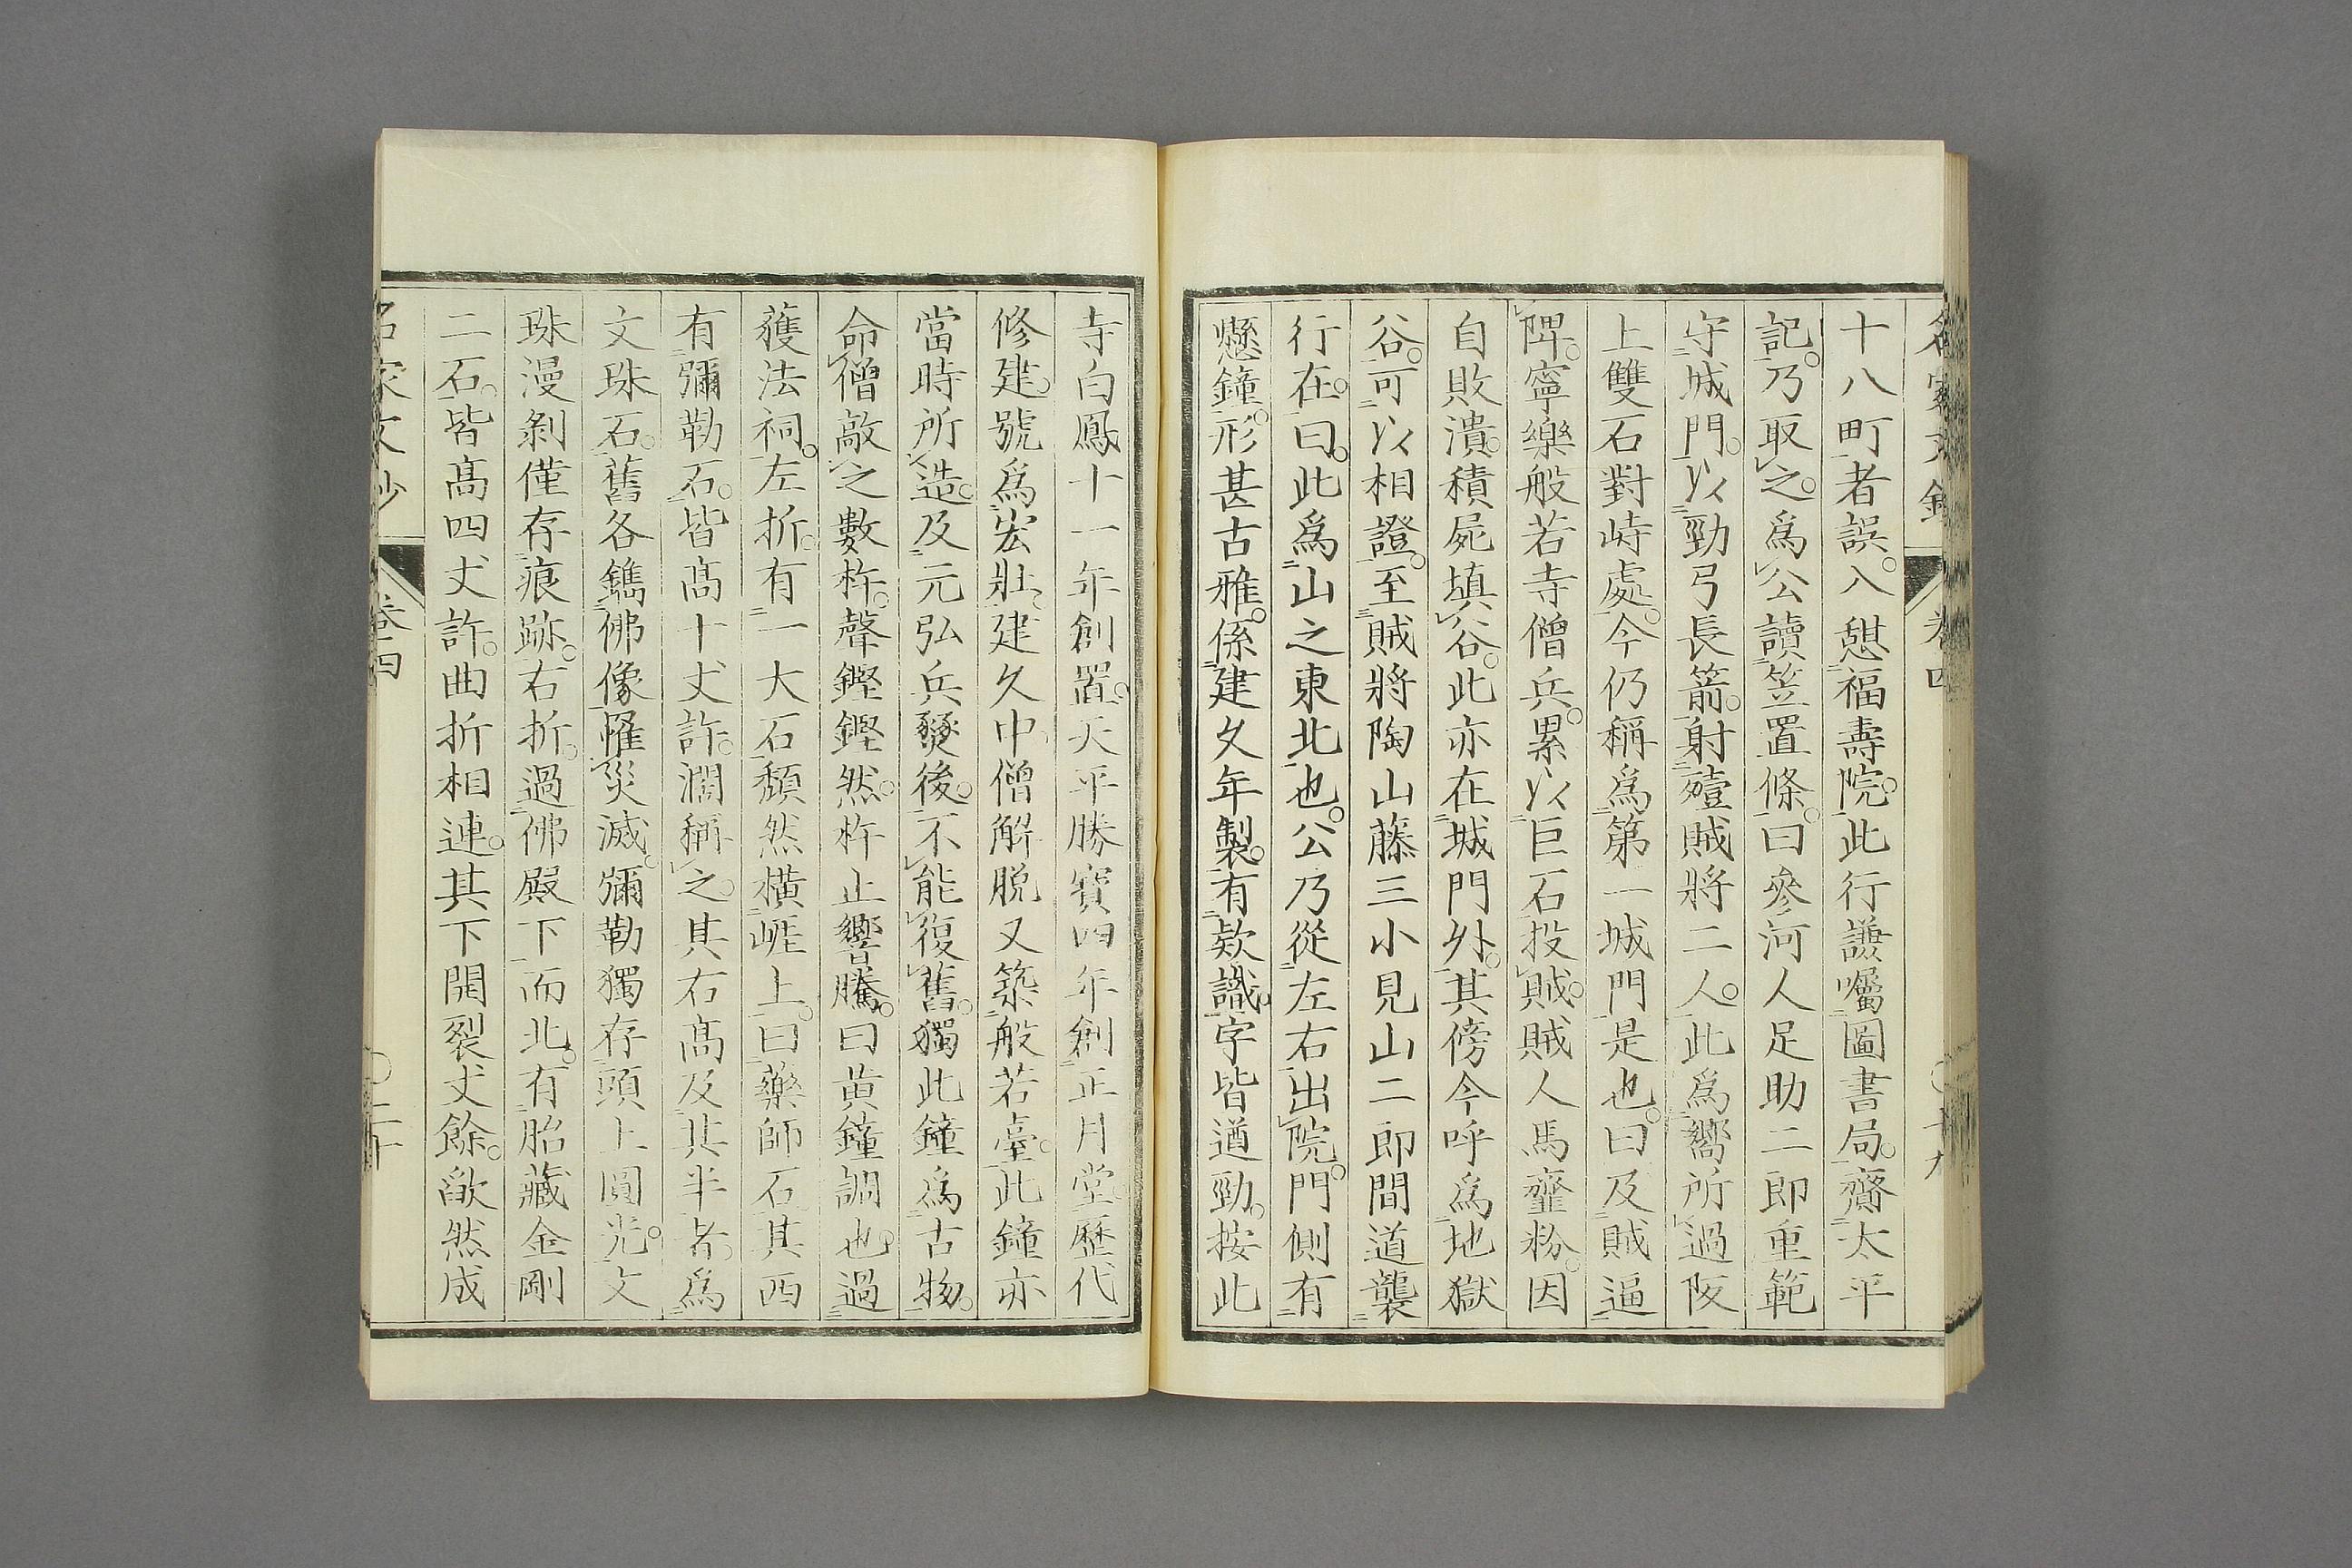 十八町者誤。入憩福壽院。此行謙囑圖書局。齎太平
記。乃取之。爲公讀笠置條。曰參河人足助二郎重範
守城門。以勁弓長箭。射殪賊將二人。此爲嚮所過阪
上雙石對峙處。今仍稱爲第一城門是也。曰及賊逼
陴。寧樂般若寺僧兵。累以巨石投賊。賊人馬虀粉。因
自敗潰。積屍填谷。此亦在城門外。其傍今呼爲地獄
谷。可以相證。至賊將陶山藤三小見山二郎間道襲
行在。曰。此爲山之東北也。公乃從左右出院。門側有
懸鐘。形甚古雅。係建久年製。有欵識。字皆遒勁。按此
寺白鳳十一年創置。天平勝寶四年創正月堂。歷代
修建。號爲宏壯。建久中。僧解脱又築般若臺。此鐘亦
當時所造。及元弘兵燹後。不能復舊。獨此鐘爲古物。
命僧敲之數杵。聲鏗鏗然。杵止響騰。曰黄鐘調也。過
蘿法祠。左折。有一大石頹然橫崕上。曰藥師石。其西
有彌勒石。皆高十丈許。濶稱之。其右高及其半者。爲
文珠石。舊各鐫佛像。罹災滅。彌勒獨存頭上圓光。文
珠漫剝僅存痕跡。右折。過佛殿下而北。有胎藏金剛
二石。皆高四丈許。曲折相連。其下開裂丈餘。歙然成
名家文鈔 卷四 二十